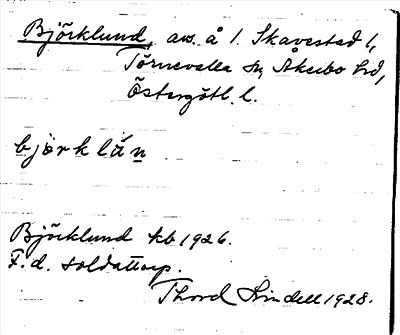 Björklund, avs. å 1 Skävestad 1,
Törnevalla sn, Åkerbo hd,
Östergötl. l.
björklún
Björklund kb 1926.
F. d. soldattorp.
Thord Lindell 1928.